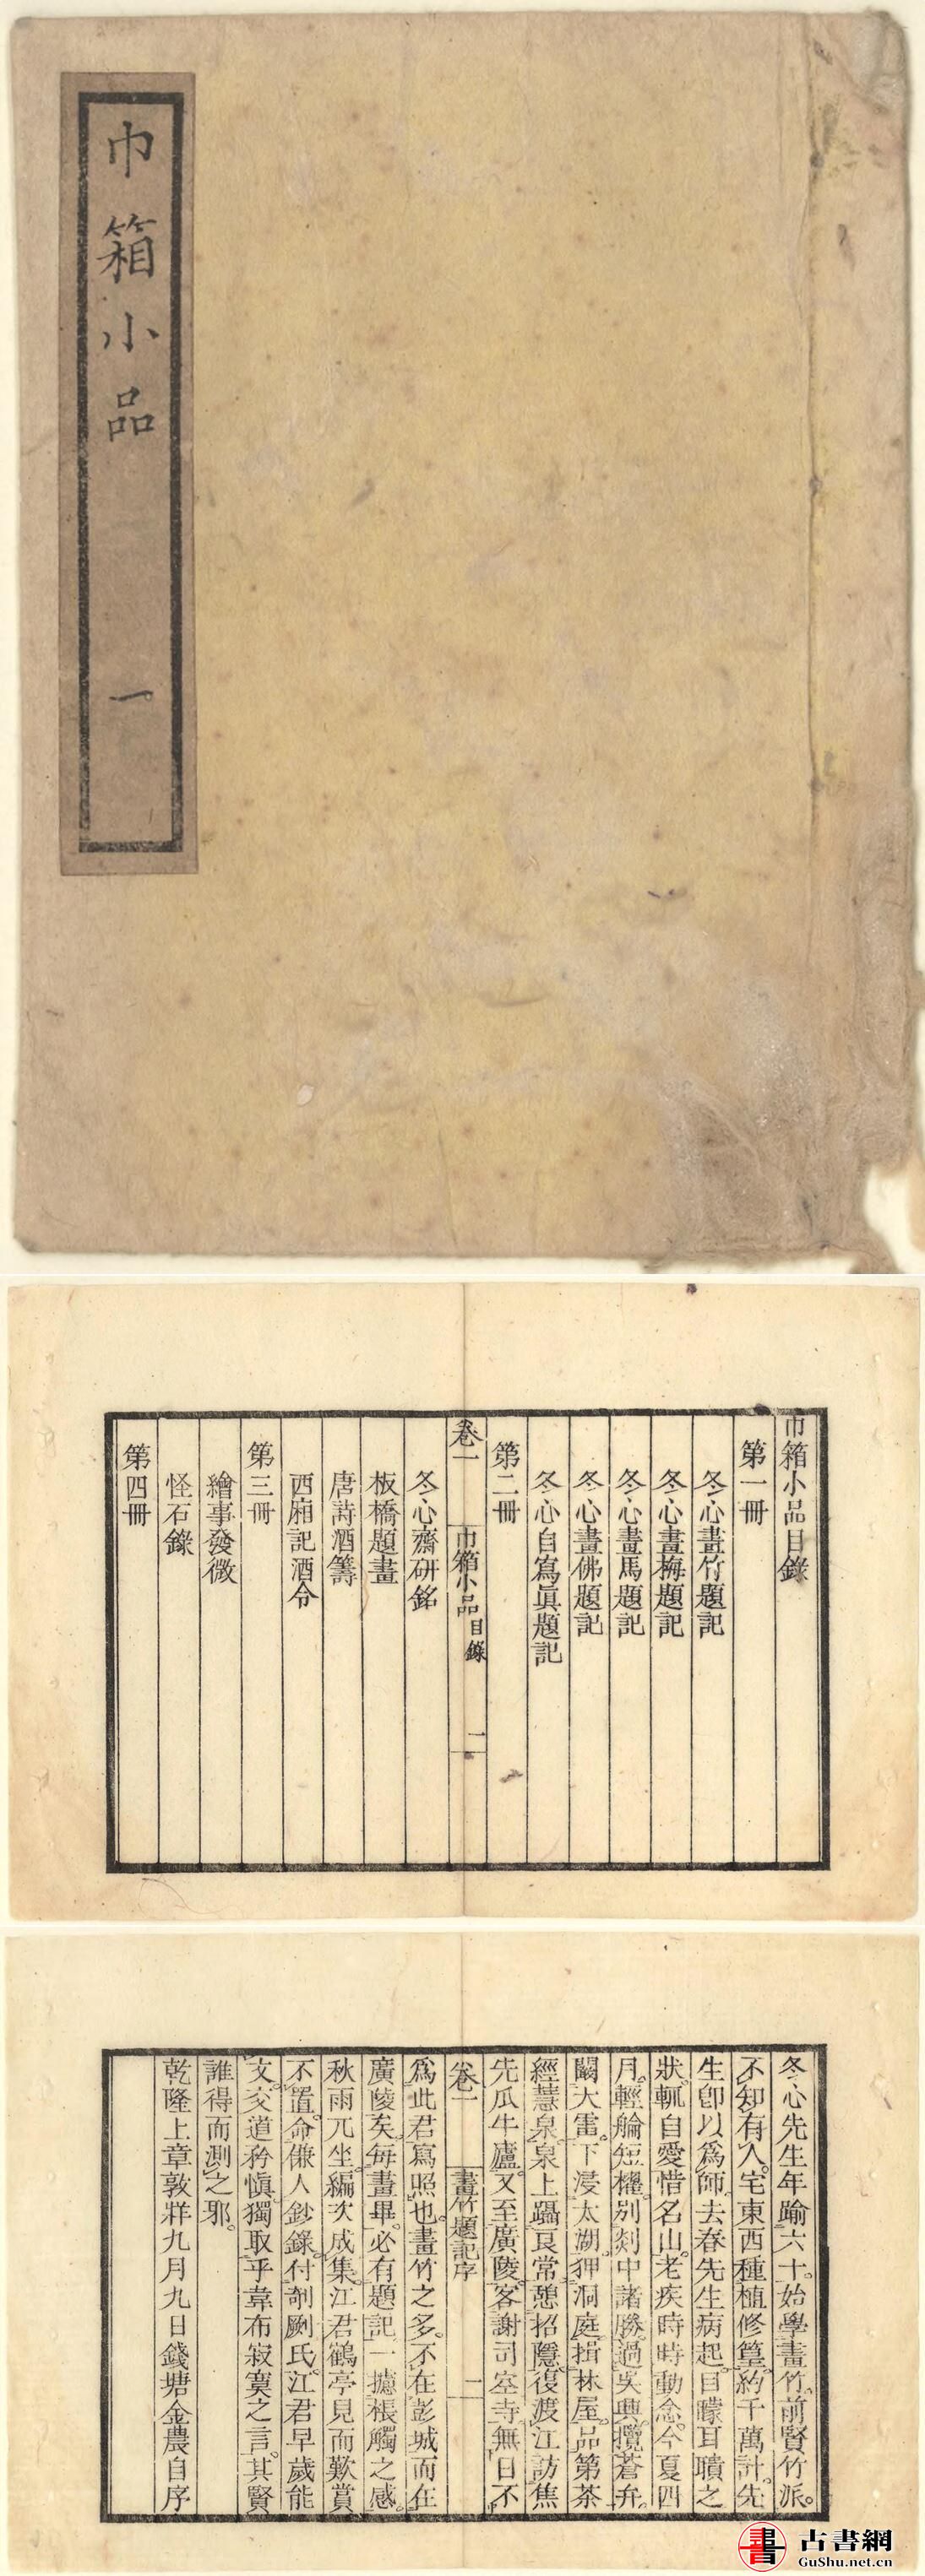 巾箱小品
一
巾箱小品目錄
第一冊
冬心畫竹題記
冬心畫梅題記
冬心畫馬題記
冬心畫佛題記
冬心自寫眞題記
第二冊
卷一
巾箱小品
目錄
一
冬心齋研銘
板橋題畫
唐詩酒籌
西廂記酒令
第三冊
繪事發微
怪石錄
第四冊
冬心先生年踰六十。始學畫竹。前賢竹派。
不知有人。宅東西種植修篁。約千萬計。先
生卽以爲師。去春先生病起。目矇耳聵之
狀。輒自愛惜名山。老疾時時動念。今夏四
月。輕艑短櫂。別剡中諸勝。過吳興。攬蒼弁。
闞大雷。下浸太湖。狎洞庭。揖林屋。品第茶
經慧泉。泉上躡良常。憩招隱。復渡江訪焦
先瓜牛廬。又至廣陵。客謝司空寺。無日不
卷一
畫竹題記序
二
爲此君寫照也。畫竹之多。不在彭城而在
廣陵矣。每畫畢。必有題記。一攄棖觸之感。
秋雨兀坐。編次成集。江君鶴亭見而歎賞
不置。命傔人鈔錄。付剞劂氏。江君早歲能
文。交道矜愼。獨取乎韋布寂寞之言。其賢
誰得而測之邪。
乾隆上章敦牂九月九日錢塘金農自序
古書網
GuShu.net.cn